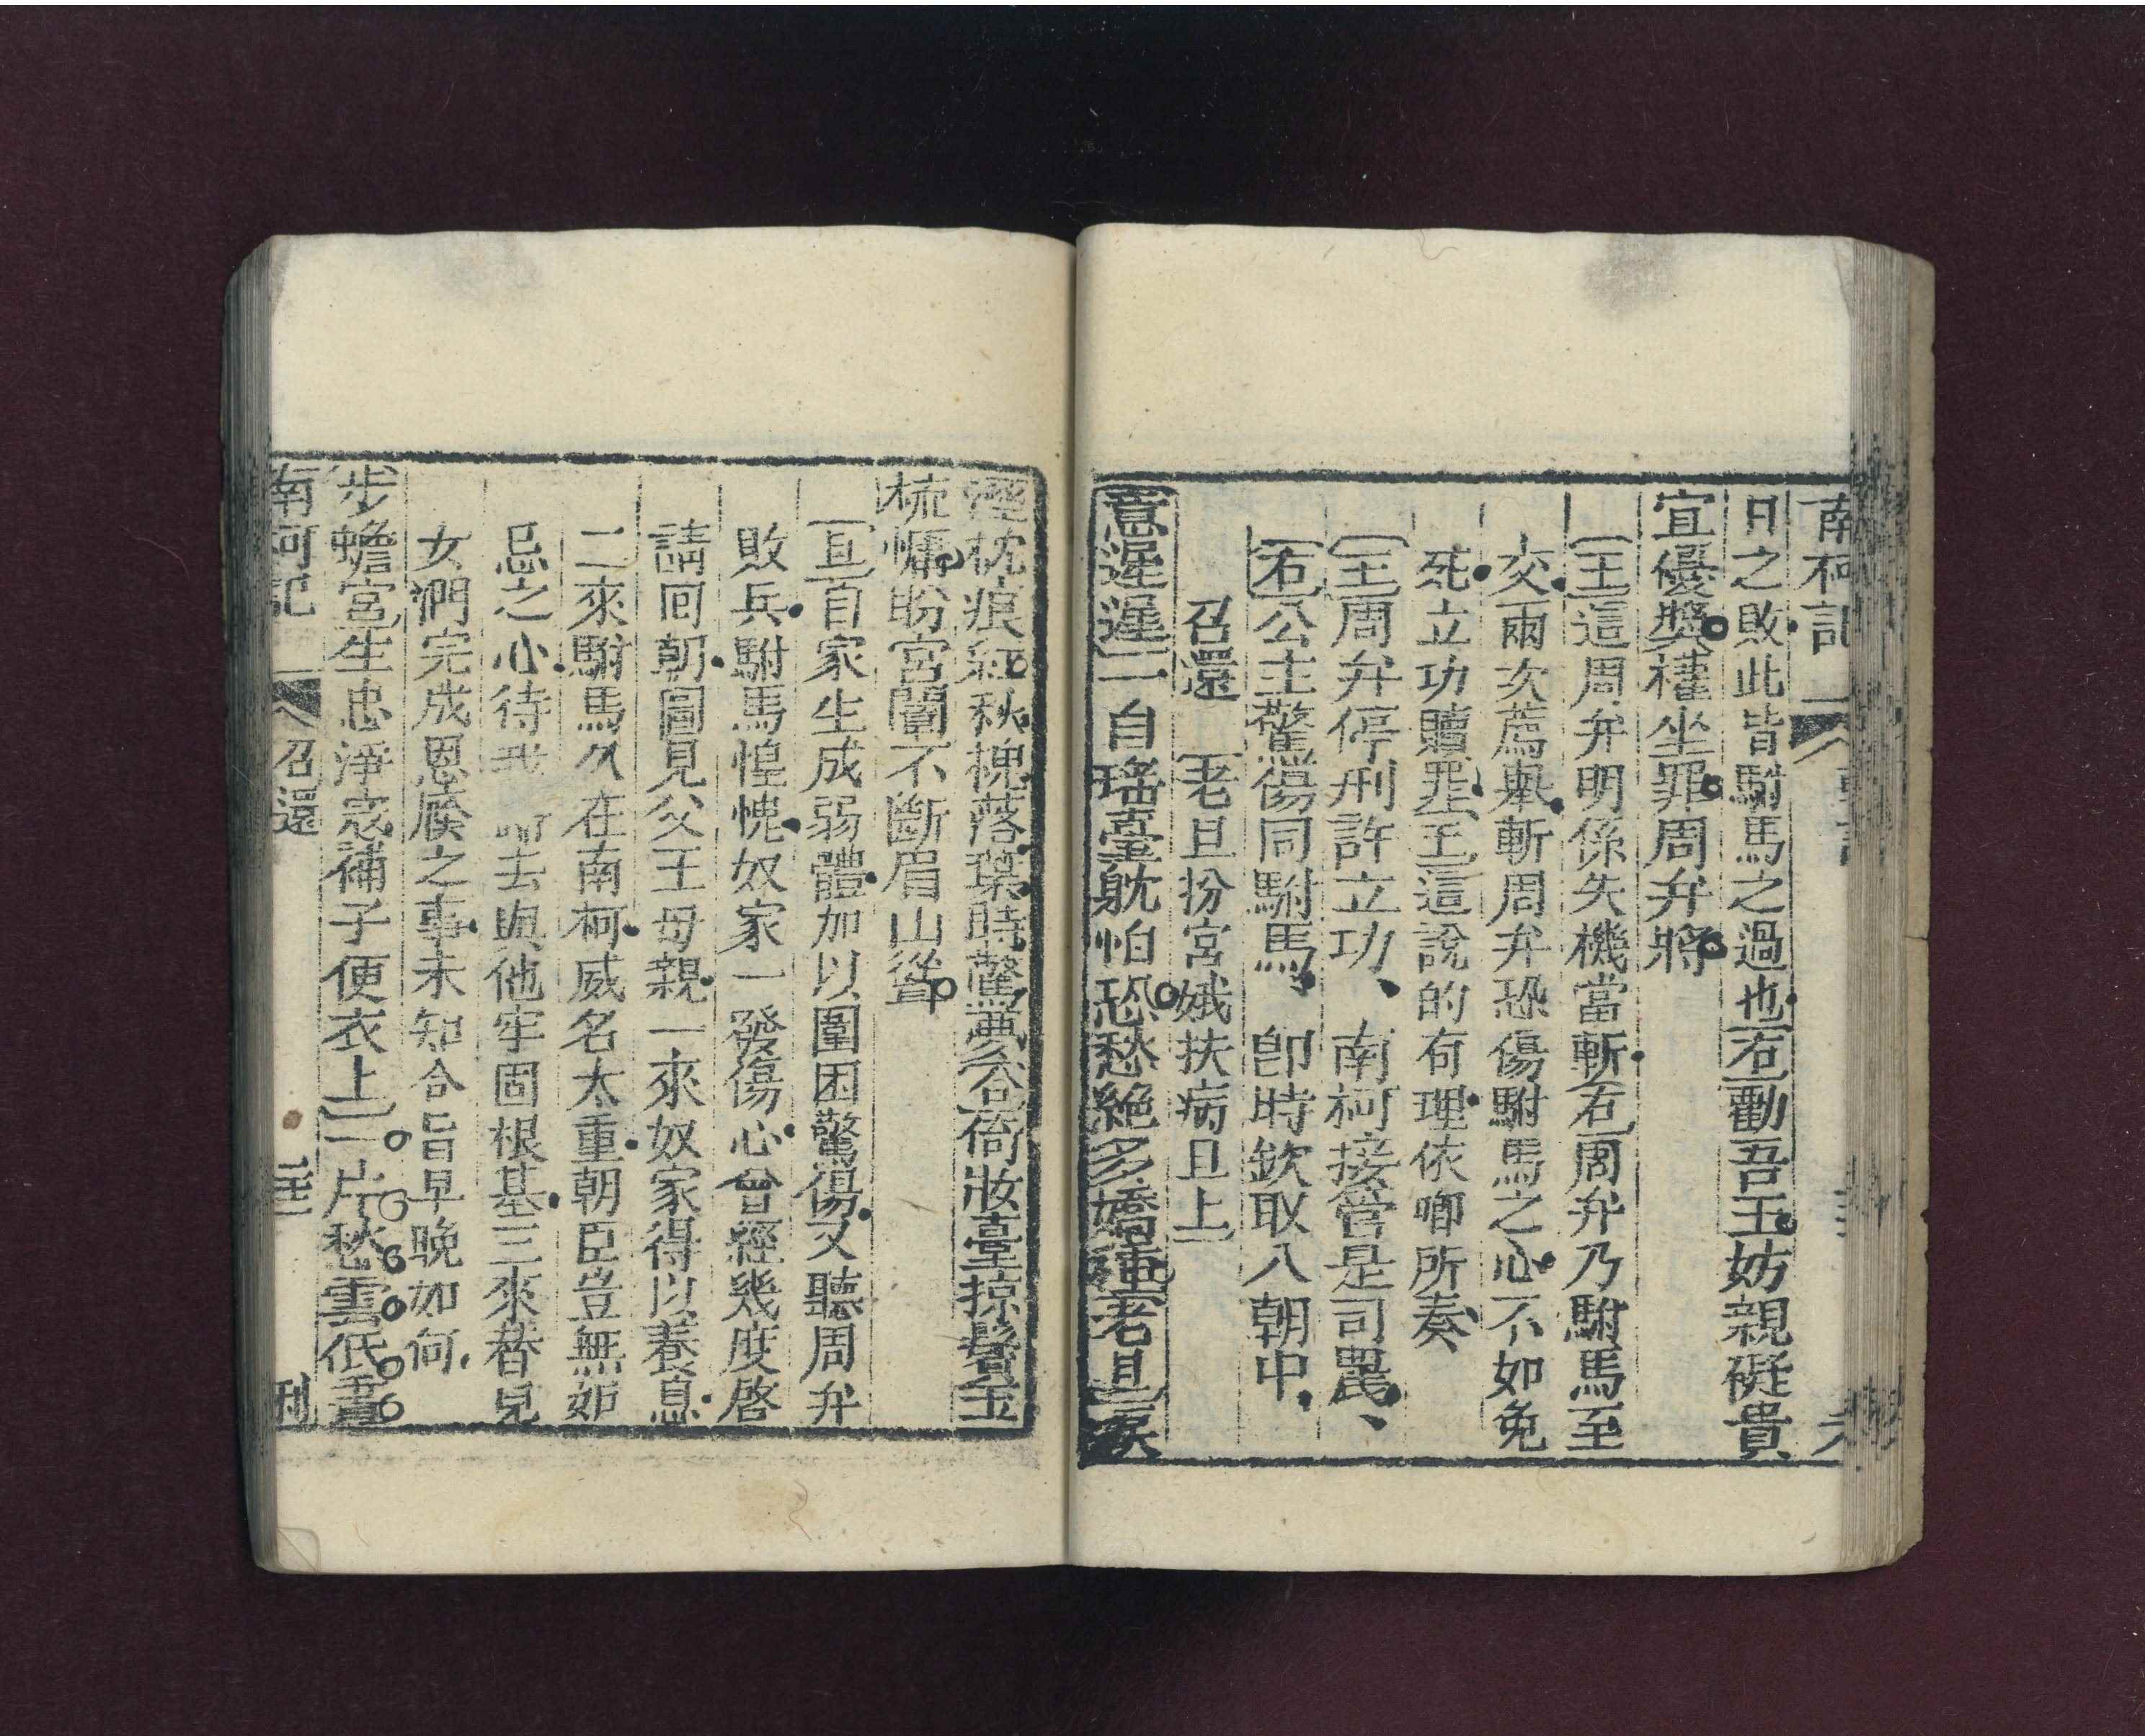 南柯記
日之敗此皆駙馬之過也右勸吾王妨親礙貴
宜優奬權坐罪周弁將
王這周弁明係失機當斬右周弁乃駙馬至
交兩次薦舉斬周弁恐傷駙馬之心不如免
死立功贖罪王這說的有理依卿所奏
王周弁停刑許立功、南柯接管是司農、
右公主驚傷同駙馬、卽時欽取入朝中
召還 老旦扮宮娥扶病旦上
意遲遲一自瑤臺躭怕恐愁絕多嬌種老旦淚
溼枕痕紅秋槐落葉時驚夢合倚妝臺掠鬢玉
梳慵盼宮闈不斷眉山聳
旦自家生成弱體加以圍困驚傷又聽周弁
敗兵駙馬惶愧奴家一發傷心曾經幾度啓
請回朝圖見父王母親一來奴家得以養息
二來駙馬久在南柯威名太重朝臣豈無妬
忌之心待我 去與他牢固根基三來替兒
女們完成恩廕之事未知合旨早晚如何
步蟾宮生忠淨宼補子便衣上一片愁雲低畫
南柯記 召還 刋